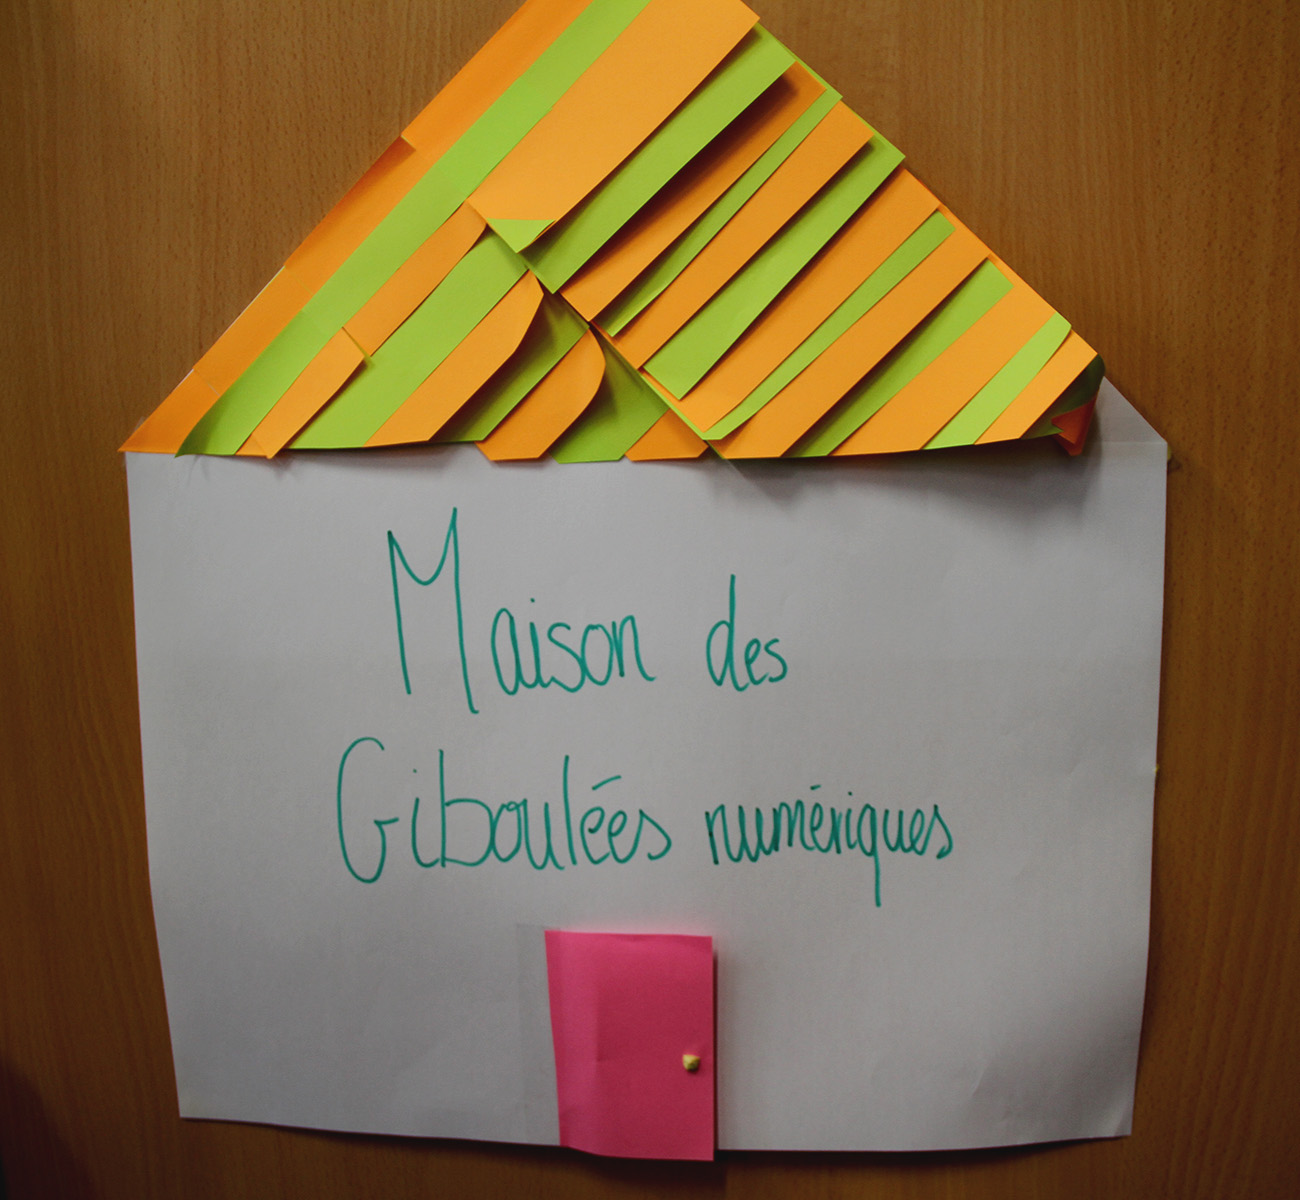 Maison des
Giboulées numériques